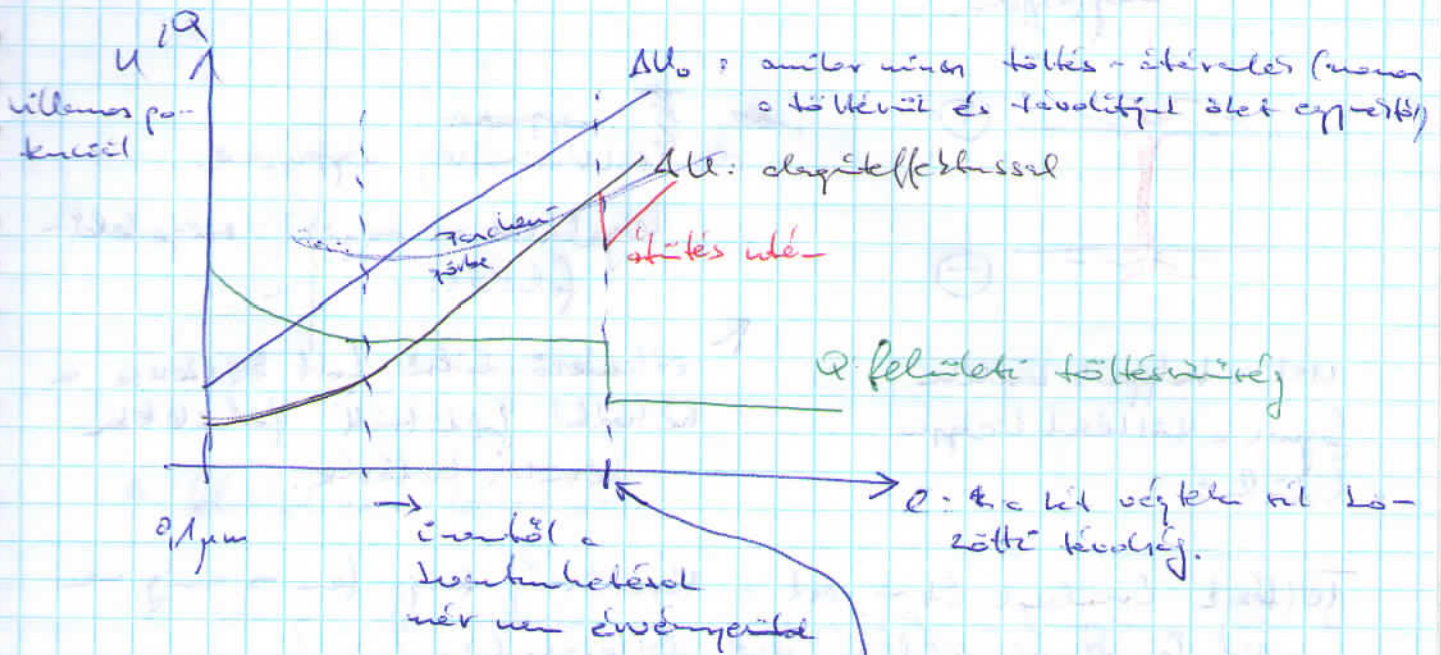 U, Q
villamos po-
tenciál
ΔU₀ : amikor nincs töltés-átvezetés (
a töltésük és távolítjuk őket egymástól)
ΔU: alagúteffektussal
Paschen
görbe
átütés után
Q: felületi töltéssűrűség
0,1 μm
→ innentől a
kontakthatások
már nem érvényesülnek
l: a két végtelen sík kö-
zötti távolság.